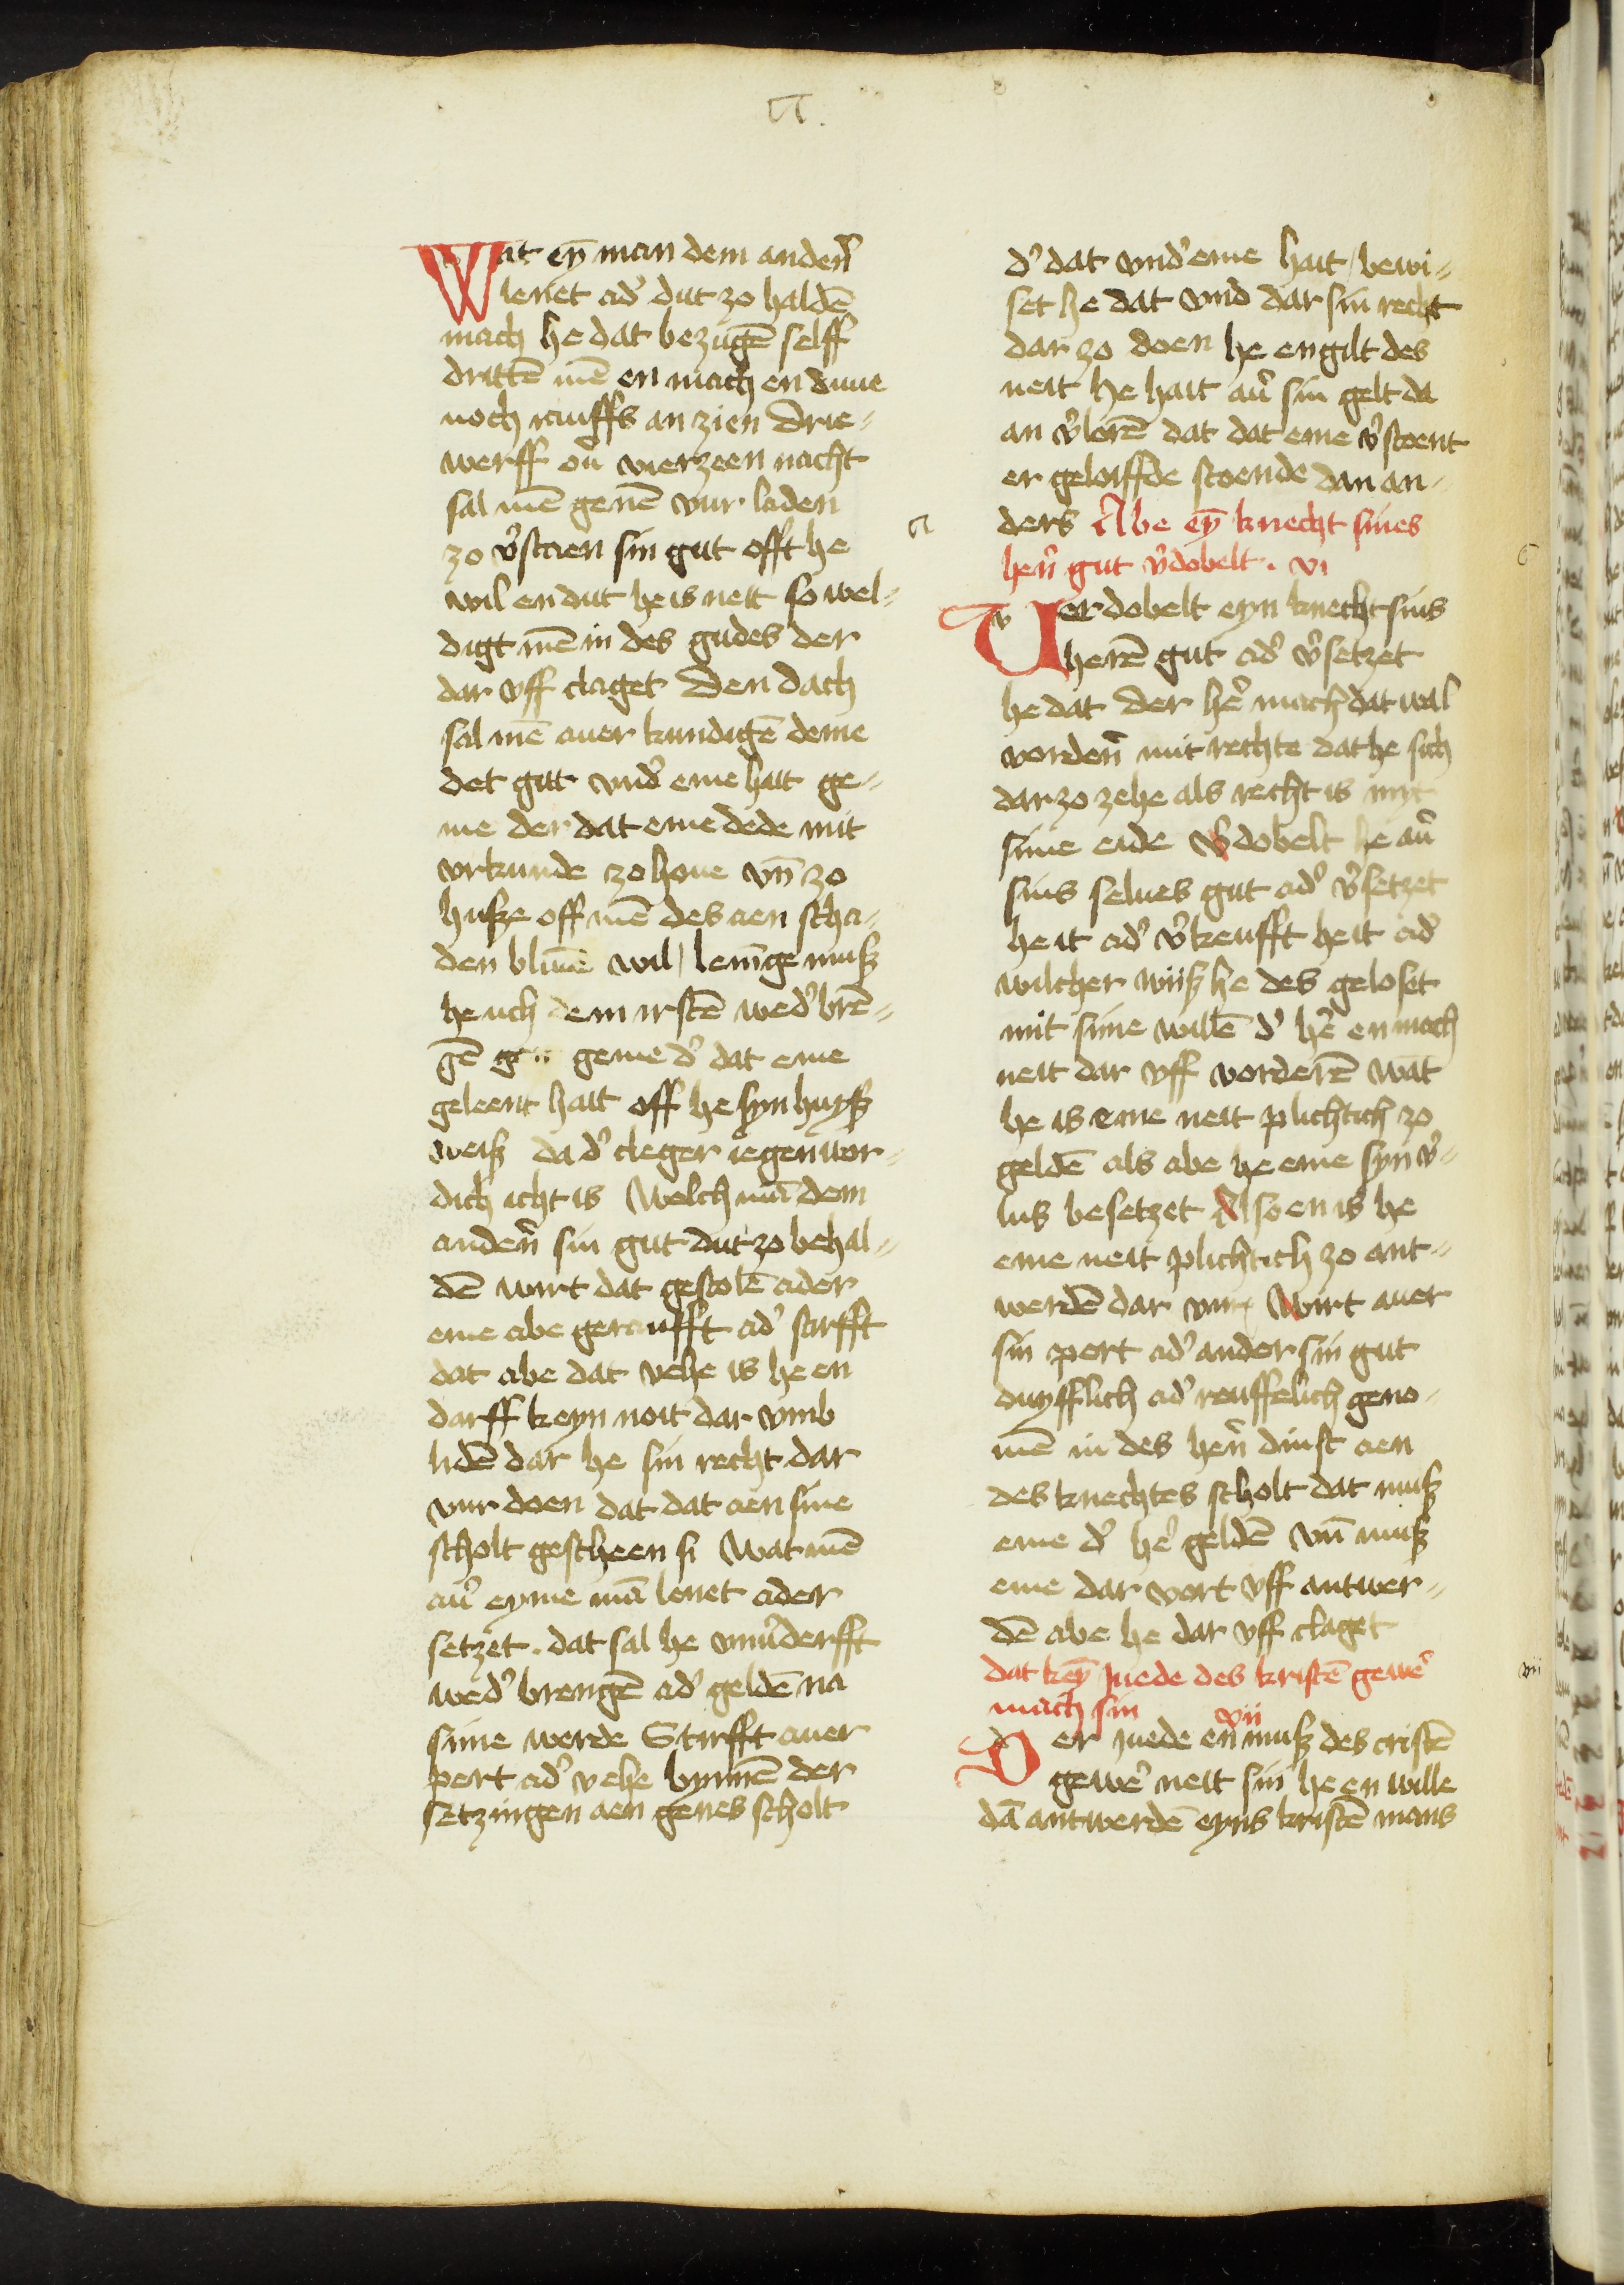 Wat eȳ man dem andeñ
lenet ad' dut zo haldē
mach he dat bezugē selff
drittē mē en mach en duue
noch rauffs an zien Drie-
werff ou vierzeen nacht
sal mē genē vur laden
zo v'staen sin gut offt he
wil en dut he is neit so wel-
digt mē in des gudes der
dar vff claget Den dach
sal mē auer kundigē deme
det gut vnd' eme hait ge-
me der dat eme dede mit
vrkunde zo houe vn̄ zo
husze off mē des aen scha-
den bliuē wil lenīge musz
he uch dem irstē wed' brē-
gē geme d' dat eme
geleent hait off he syn huysz
weisz da d' cleger iegenwor-
dich icht is Welch mā dem
andeñ sin gut dut zo behal-
dē wirt dat gestolē ader
eme abe geraufft ad' stirfft
dat abe dat vehe is he en
darff keyn noit dar vmb
lidē dar he sin recht dar
vur doen dat dat aen sine
scholt gescheen si Wat mē
au' eyme mā lenet ader
setzet . dat sal he vnu'derfft
wed' brengē ad' geldē na
sime werde Stirfft auer
pert ad' vehe bynnē der
setzingen aen genes scholt
d' dat vnd' eme hait / bewi-
set he dat vnd dar sin recht
dar zo doen he engilt des
neit he hait au' sin gelt da
an v'lorē dat dat eme v'stoent
er geloiffde stoende dan an-
ders Abe eȳ knecht sines
heñ gut v'dobelt . vi
Verdobelt eyn knecht sins
herē gut ad' v'setzet
he dat Der he' mach dat wal
vordeñ mit rechte dat he sich
dar zo zehe als recht is myt
sime eide V'dobelt he au'
sins selues gut ad' v'setzet
heit ad' v'keufft heit ad'
wilcher wiisz he des geloset
mit sime willē d' he' en mach
neit dar vff vorderē wāt
he is eme neit plichtich zo
geldē als abe he eme syn v'-
lus besetzet Also en is he
eme neit plichtich zo ant-
werdē dar vur Wirt auer
sin pert ad' ander sin gut
duyfflich ad' reuffelich geno-
mē in des heñ dinst aen
des knechtes scholt dat musz
eme d' he' geldē vn̄ musz
eme dar vort vff antwer-
dē abe he dar vff claget
dat keȳ Juede des kristē gewe'
mach sin vii
Der juede en musz des cristē
gewe' neit sin he en wille
dā antwerdē eyns kristē mans